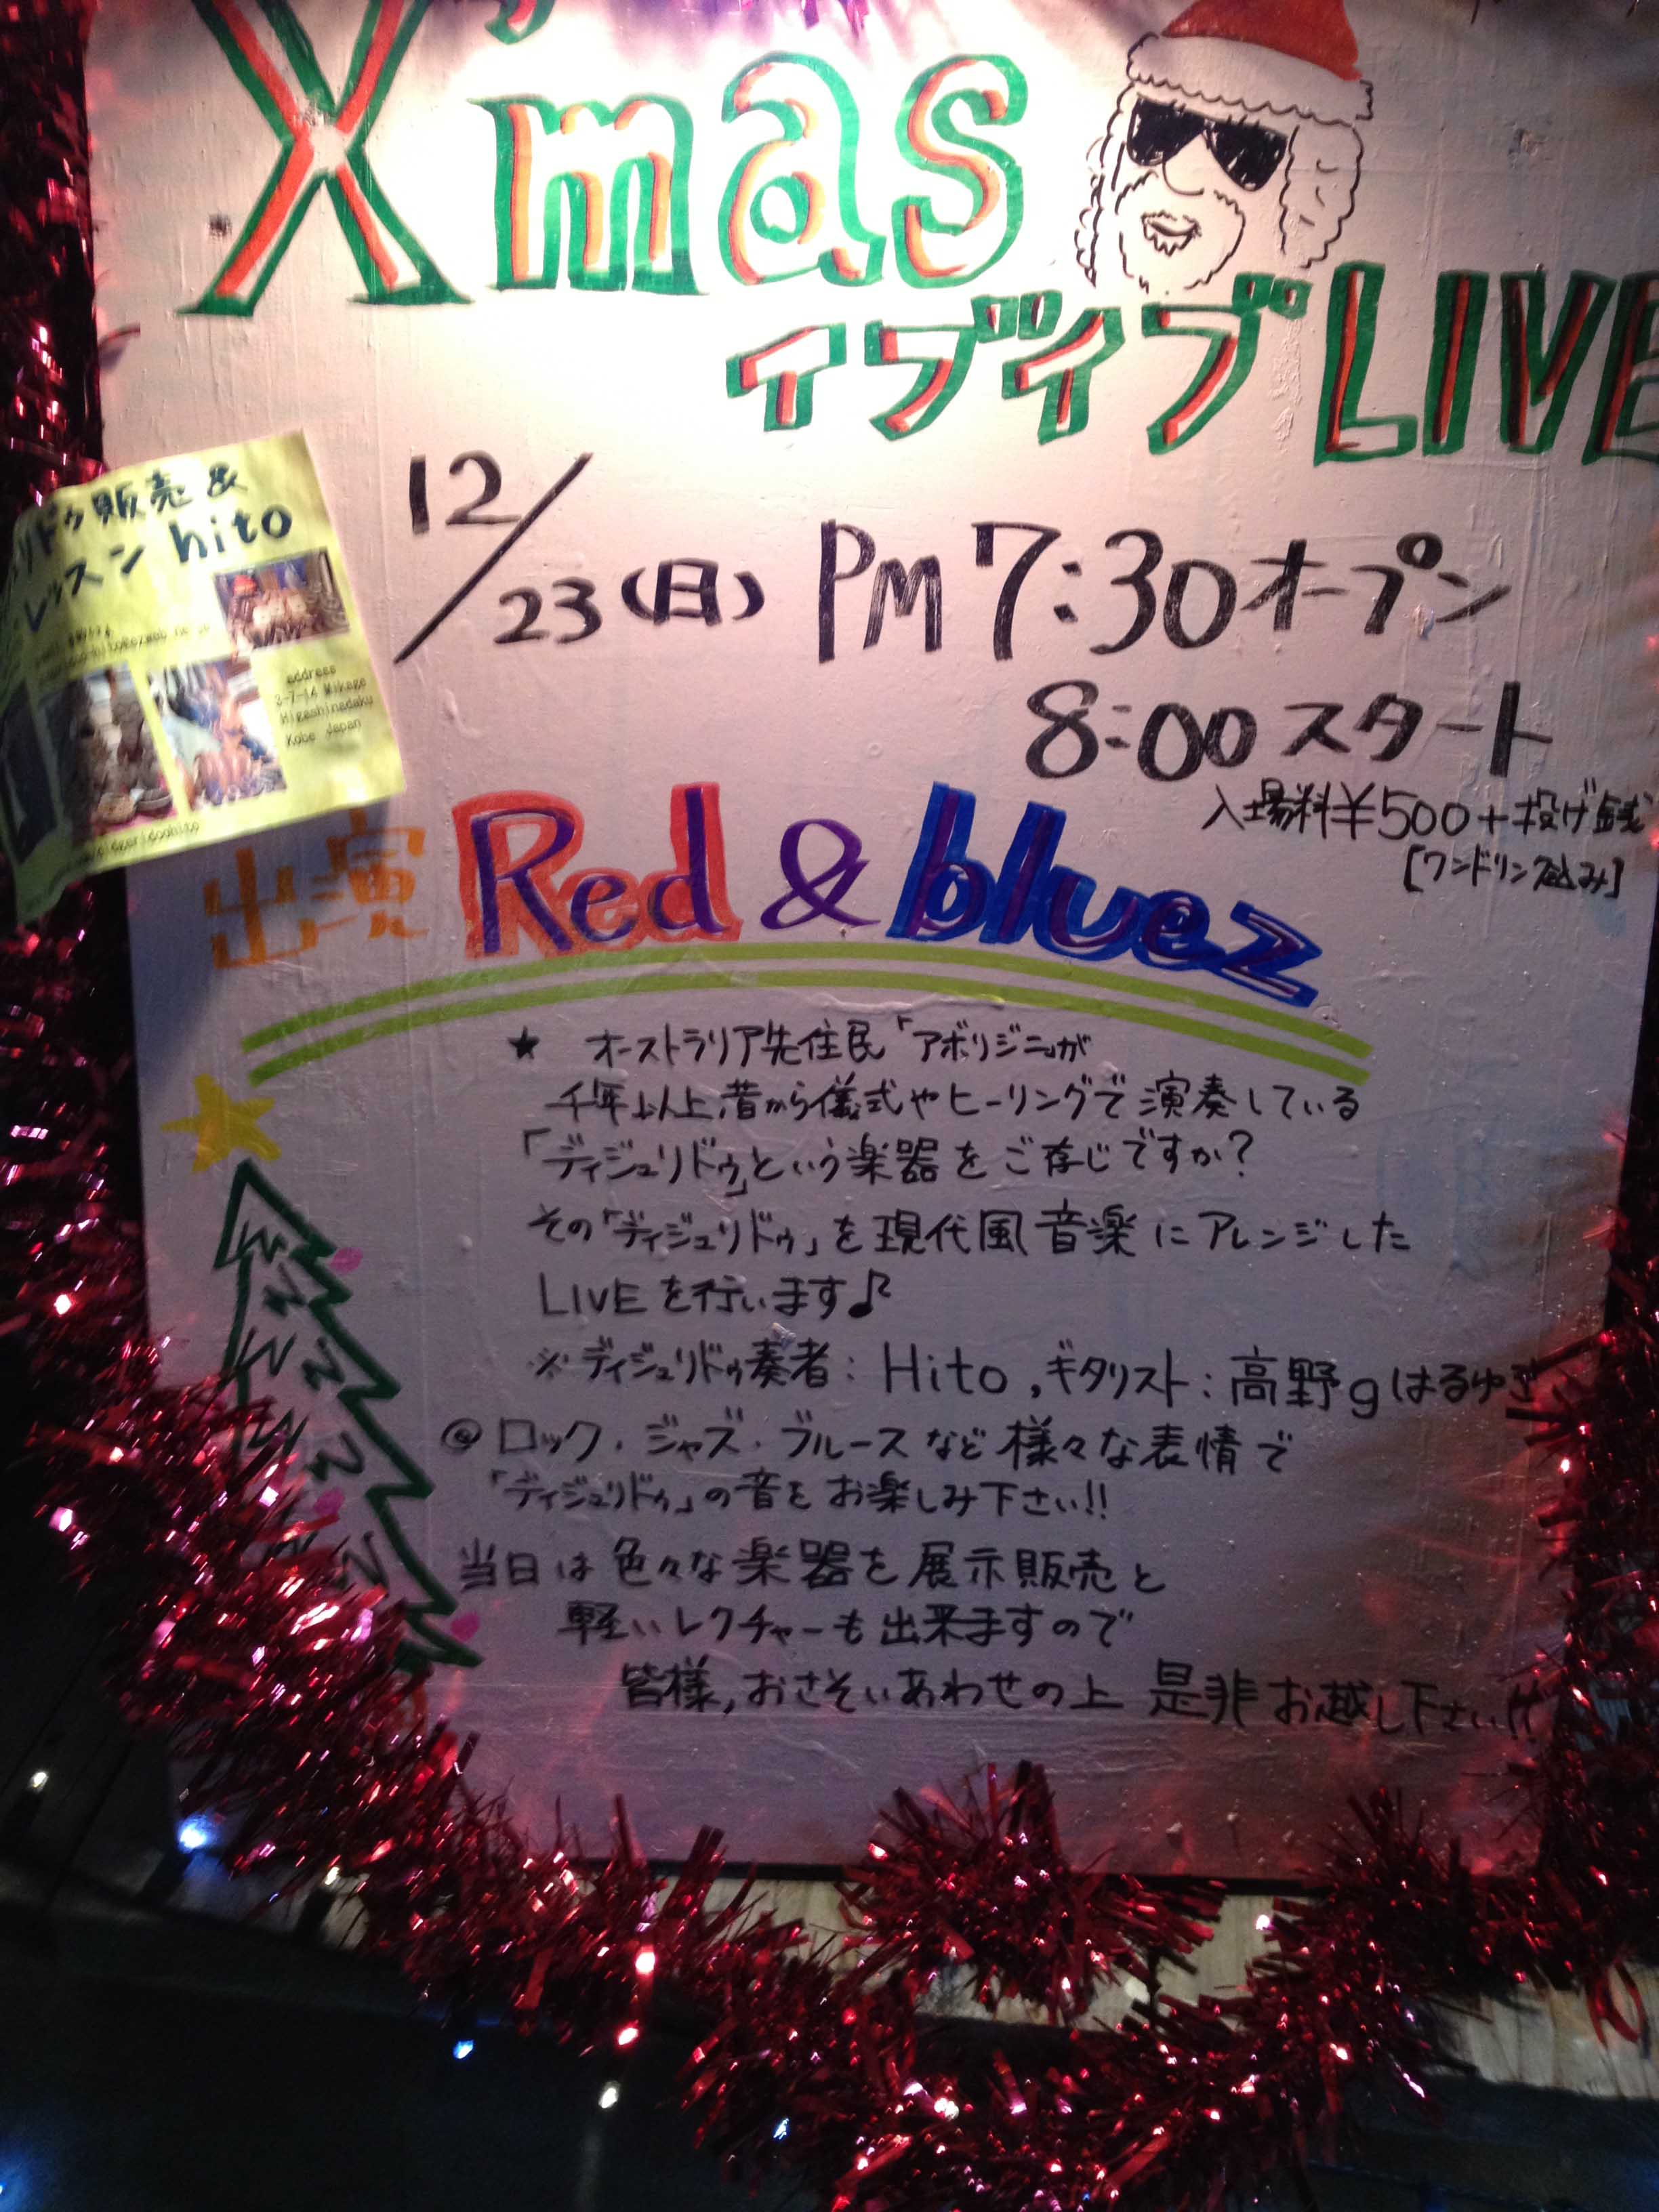 X'mas
イブイブLIVE
12/23(日) PM7:30オープン
8:00スタート
入場料¥500+投げ銭
[ワンドリンク込み]
リドゥ販売&
レッスン hito
address
3-7-14 Mikage
Higashinadaku
Kobe Japan
出演 Red & bluez
★ オーストラリア先住民「アボリジニ」が
千年以上昔から儀式やヒーリングで演奏している
「ディジュリドゥ」という楽器をご存じですか?
その「ディジュリドゥ」を現代風音楽にアレンジした
LIVEを行います♪
※ディジュリドゥ奏者:Hito,ギタリスト:高野gはるゆき
◎ロック・ジャズ・ブルースなど様々な表情で
「ディジュリドゥ」の音をお楽しみ下さい!!
当日は色々な楽器を展示販売と
軽いレクチャーも出来ますので
皆様,おさそいあわせの上 是非お越し下さい!!